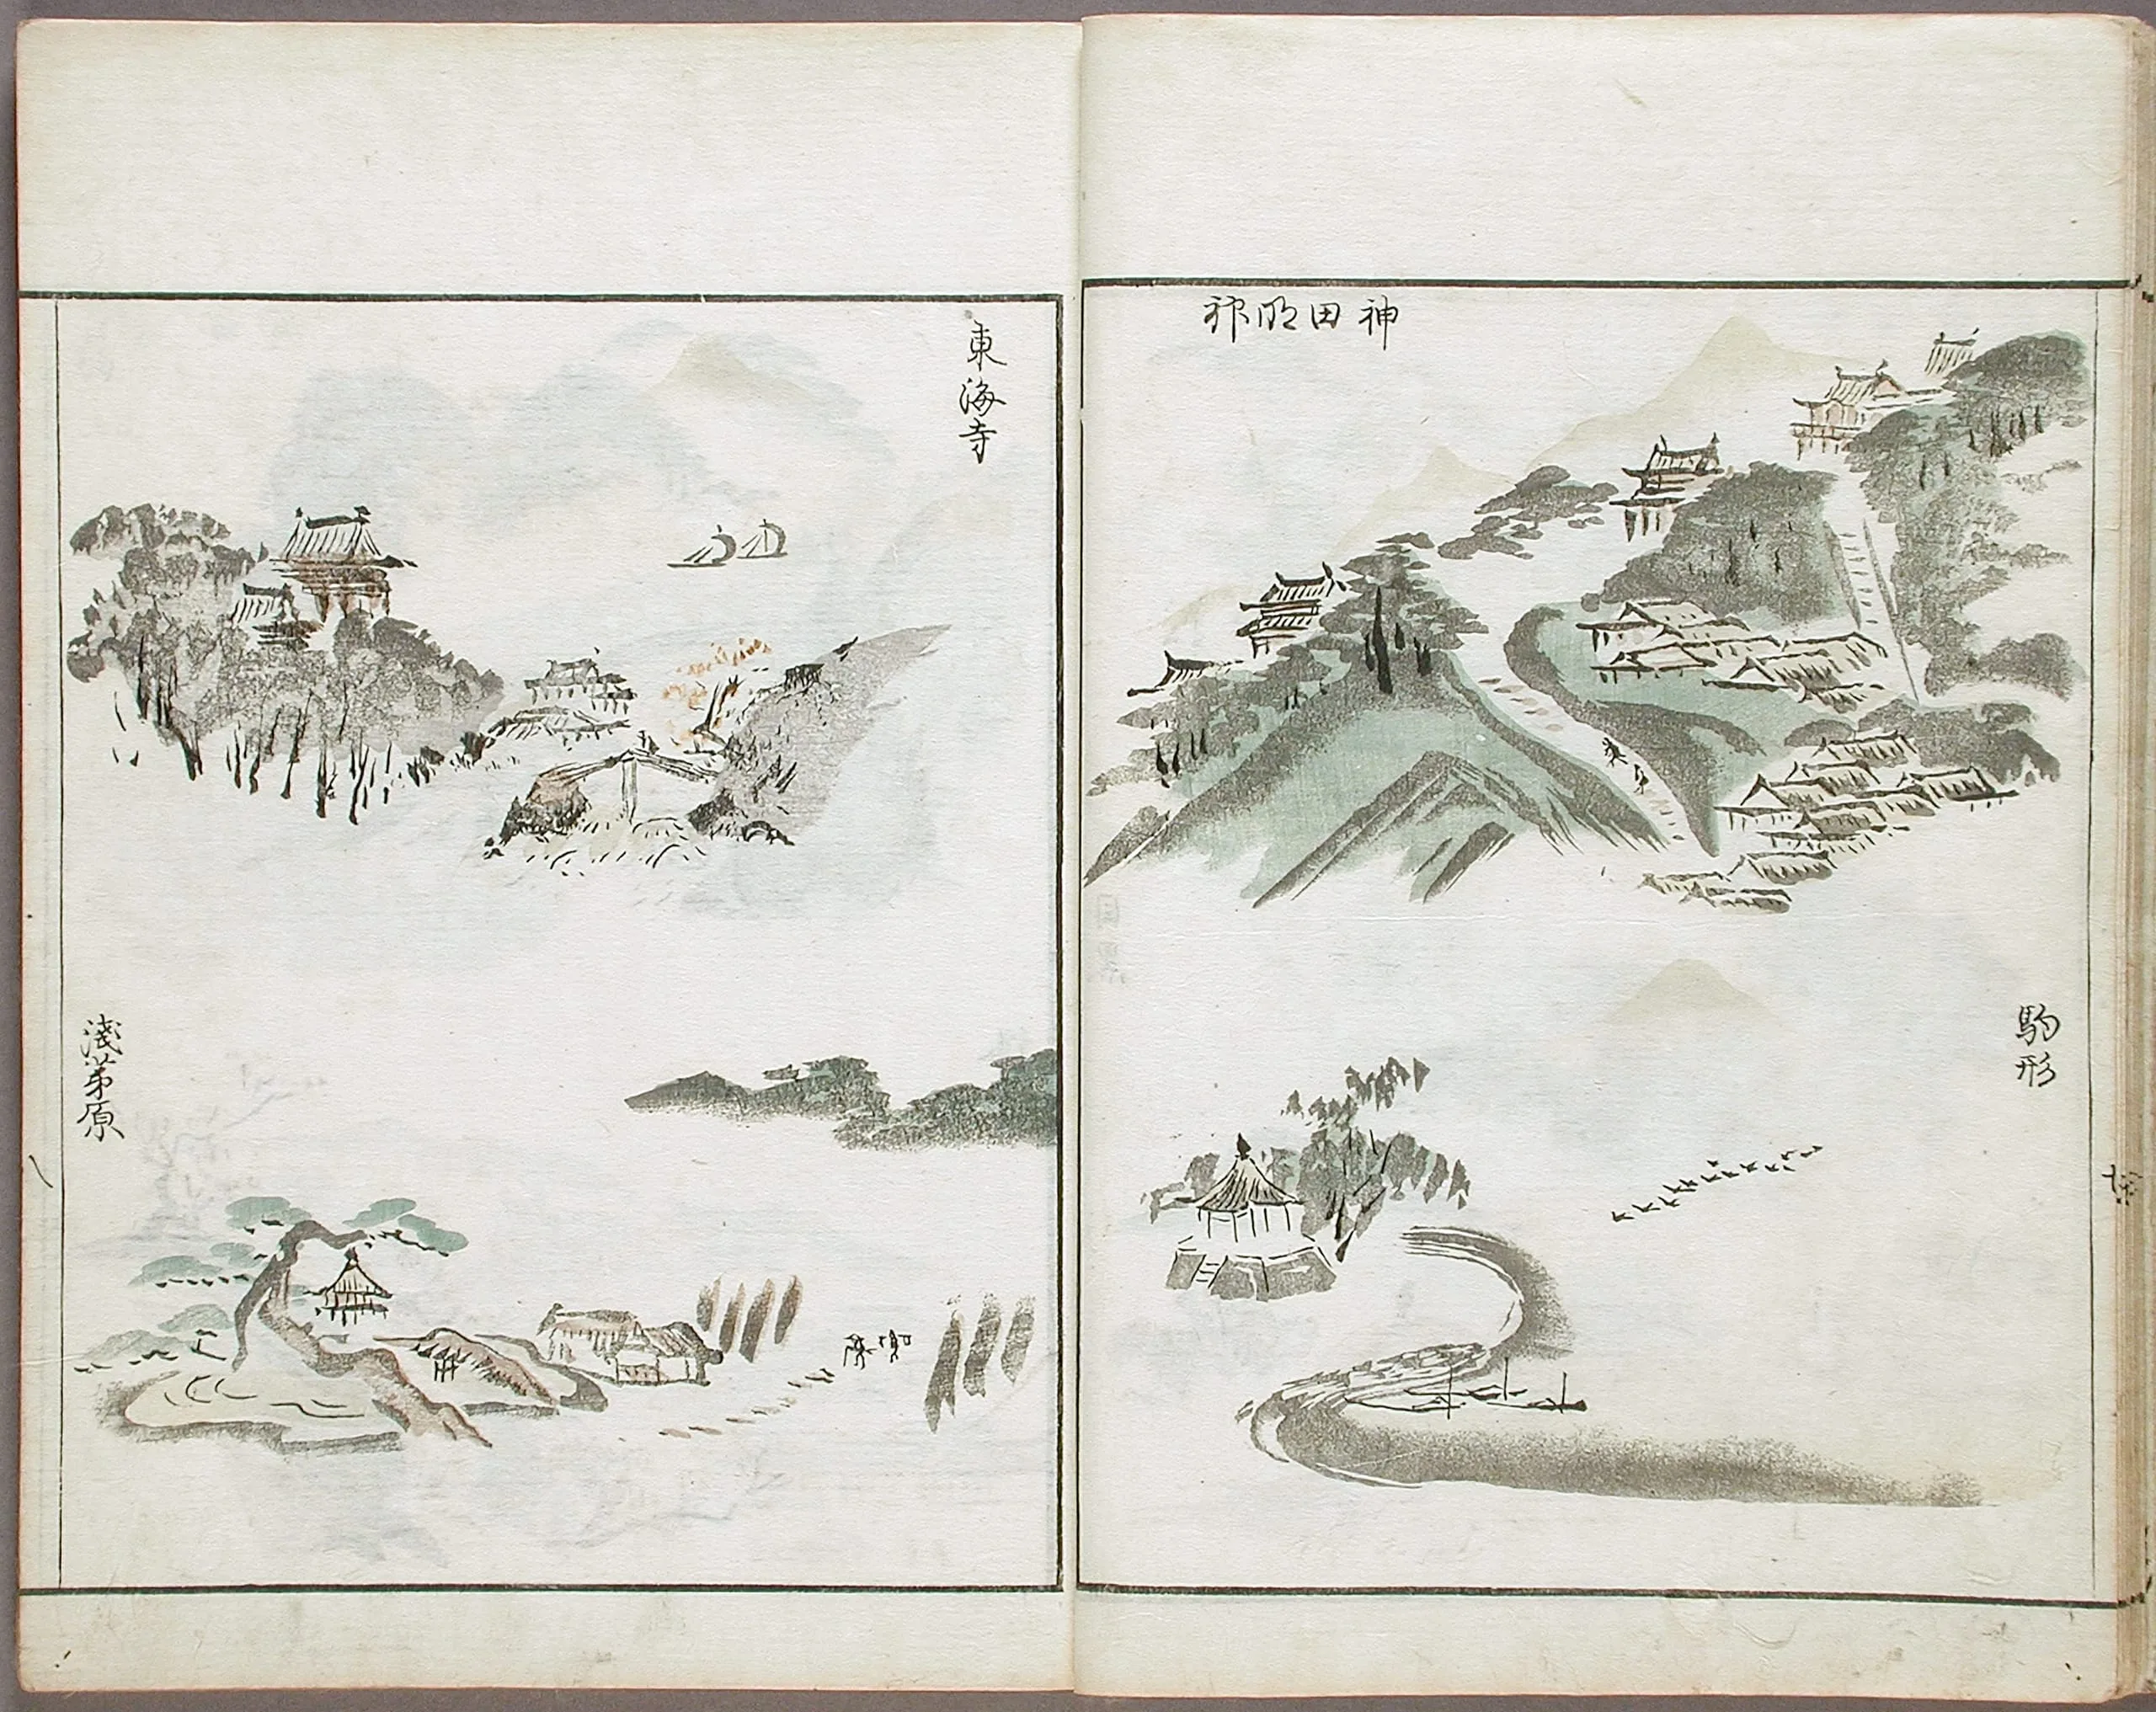 神田明神
駒形
東海寺
淺茅原